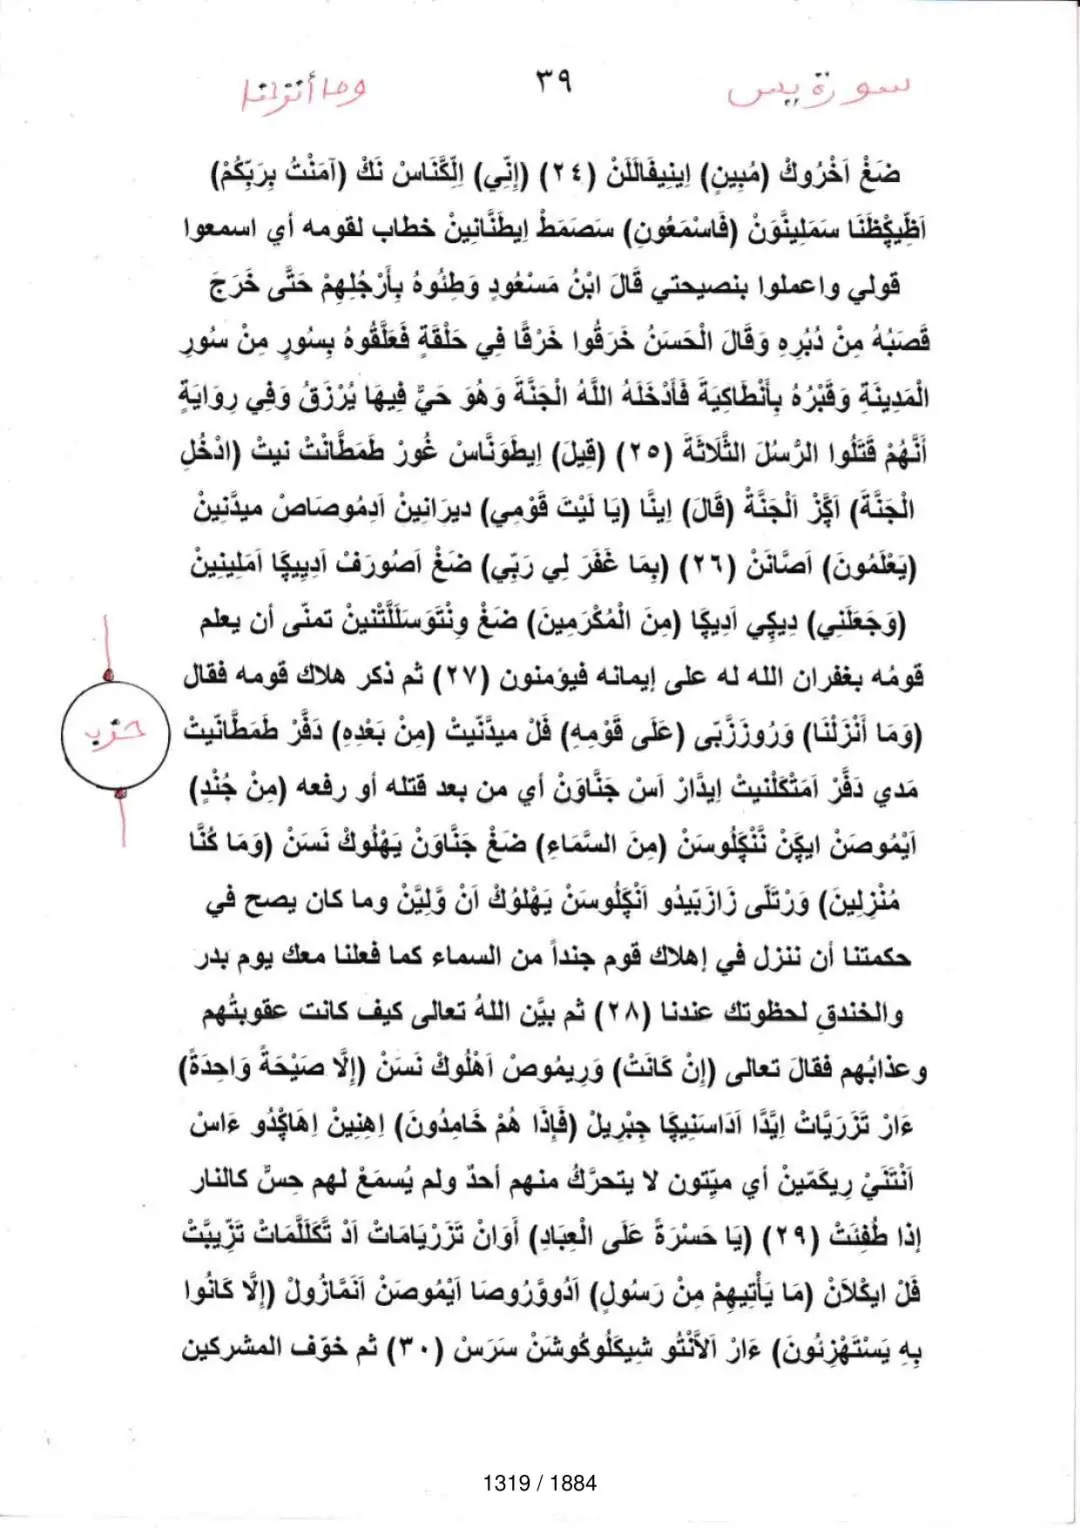 سورة يس
٣٩
وما أنزلنا
ضَغْ اَخْرُوكْ (مُبِينٍ) اِينِيفَالَلَنْ (٢٤) (إِنِّي) اِلِّكَنَاسْ نَكْ (آمَنْتُ بِرَبِّكُمْ)
اَظِّيكِظَنَا سَمَلِينَّوَنْ (فَاسْمَعُونِ) سَصَمَطْ اِيطَنَّانِينْ خطاب لقومه أي اسمعوا
قولي واعملوا بنصيحتي قَالَ ابْنُ مَسْعُودٍ وَطِئُوهُ بِأَرْجُلِهِمْ حَتَّى خَرَجَ
قَصَبُهُ مِنْ دُبُرِهِ وَقَالَ الْحَسَنُ خَرَقُوا خَرْقًا فِي حَلْقَةٍ فَعَلَّقُوهُ بِسُورٍ مِنْ سُورِ
الْمَدِينَةِ وَقَبْرُهُ بِأَنْطَاكِيَةَ فَأَدْخَلَهُ اللَّهُ الْجَنَّةَ وَهُوَ حَيٌّ فِيهَا يُرْزَقُ وَفِي رِوَايَةٍ
أَنَّهُمْ قَتَلُوا الرَّسُلَ الثَّلَاثَةَ (٢٥) (قِيلَ) اِيطَوَنَّاسْ غُورْ طَمَطَّانْتْ نيتْ (ادْخُلِ
الْجَنَّةَ) اَكِّزْ اَلْجَنَّةْ (قَالَ) اِينَّا (يَا لَيْتَ قَوْمِي) ديرَانِينْ اَدِمُوصَاصْ ميدَّنِينْ
(يَعْلَمُونَ) اَصَّانَنْ (٢٦) (بِمَا غَفَرَ لِي رَبِّي) ضَغْ اَصُورَفْ اَدِييكَا اَمَلِينِينْ
(وَجَعَلَنِي) دِيكِي اَدِيكَا (مِنَ الْمُكْرَمِينَ) ضَغْ وِنْتَوَسَلَلَّتْنينْ تمنّى أن يعلم
قومُه بغفران الله له على إيمانه فيؤمنون (٢٧) ثم ذكر هلاك قومه فقال
حزب
(وَمَا أَنْزَلْنَا) وَرُوزَزَّبَى (عَلَى قَوْمِهِ) فَلْ ميدَّنَيتْ (مِنْ بَعْدِهِ) دَفَّرْ طَمَطَّانَيتْ
مَدي دَفَّرْ اَمَتْكَلْنيتْ اِيدَّارْ اَسْ جَنَّاوَنْ أي من بعد قتله أو رفعه (مِنْ جُنْدٍ)
اَيْمُوصَنْ ايكَنْ نَنْكِلُوسَنْ (مِنَ السَّمَاءِ) ضَغْ جَنَّاوَنْ يَهْلُوكْ نَسَنْ (وَمَا كُنَّا
مُنْزِلِينَ) وَرْتَلَّى زَازَبِّيدُو اَنْكِلُوسَنْ يَهْلُوكْ اَنْ وَّلِيَّنْ وما كان يصح في
حكمتنا أن ننزل في إهلاك قوم جنداً من السماء كما فعلنا معك يوم بدر
والخندقِ لحظوتك عندنا (٢٨) ثم بيَّن اللهُ تعالى كيف كانت عقوبتُهم
وعذابُهم فقالَ تعالى (إِنْ كَانَتْ) وَرِيمُوصْ اَهْلُوكْ نَسَنْ (إِلَّا صَيْحَةً وَاحِدَةً)
ءَارْ تَزَرِيَّاتْ اِيَّدَّا اَدَاسَنِيكَا جِبْرِيلْ (فَإِذَا هُمْ خَامِدُونَ) اِهِنِينْ اِهَاكِدُو ءَاسْ
اَنْتَنَيْ رِيكَمِّينْ أي ميّتون لا يتحرَّكُ منهم أحدٌ ولم يُسمَعْ لهم حِسٌّ كالنار
إذا طُفِئَتْ (٢٩) (يَا حَسْرَةً عَلَى الْعِبَادِ) أَوَانْ تَزَرْيَامَاتْ اَدْ تَّكَلَّمَاتْ تَزِّيبَّتْ
فَلْ ايكْلَانْ (مَا يَأْتِيهِمْ مِنْ رَسُولٍ) اَدُووَّرُوصَا اَيْمُوصَنْ اَنَمَّازُولْ (إِلَّا كَانُوا
بِهِ يَسْتَهْزِئُونَ) ءَارْ اَلْاَنْتُو شِيكَلُوكُوشَنْ سَرَسْ (٣٠) ثم خوّف المشركين
1319 / 1884